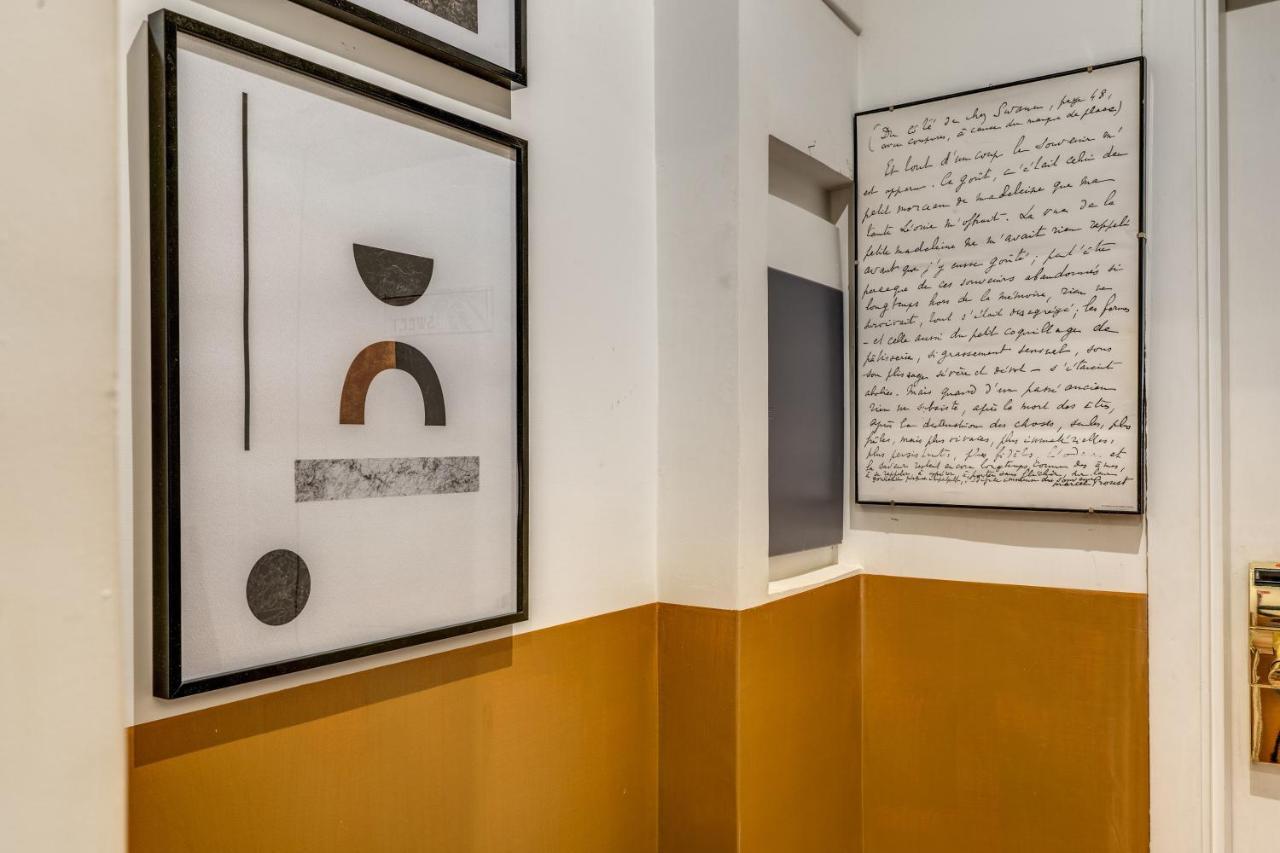 (Du côté de chez Swann, page 48,
avec coupures, à cause du manque de place)
Et tout d'un coup le souvenir m'
est apparu. Ce goût, c'était celui du
petit morceau de madeleine que ma
tante Léonie m'offrait. La vue de la
petite madeleine ne m'avait rien rappelé
avant que j'y eusse goûté ; peut-être
parce que de ces souvenirs abandonnés si
longtemps hors de la mémoire, rien ne
survivait, tout s'était désagrégé ; les formes
- et celle aussi du petit coquillage de
pâtisserie, si grassement sensuel, sous
son plissage sévère et dévot - s'étaient
abolies. Mais quand d'un passé ancien
rien ne subsiste, après la mort des êtres,
après la destruction des choses, seules, plus
frêles, mais plus vivaces, plus immatérielles,
plus persistantes, plus fidèles, l'odeur et
la saveur restent encore longtemps, comme des âmes,
à se rappeler, à espérer, à porter sans fléchir,
Marcel Proust
SWEET